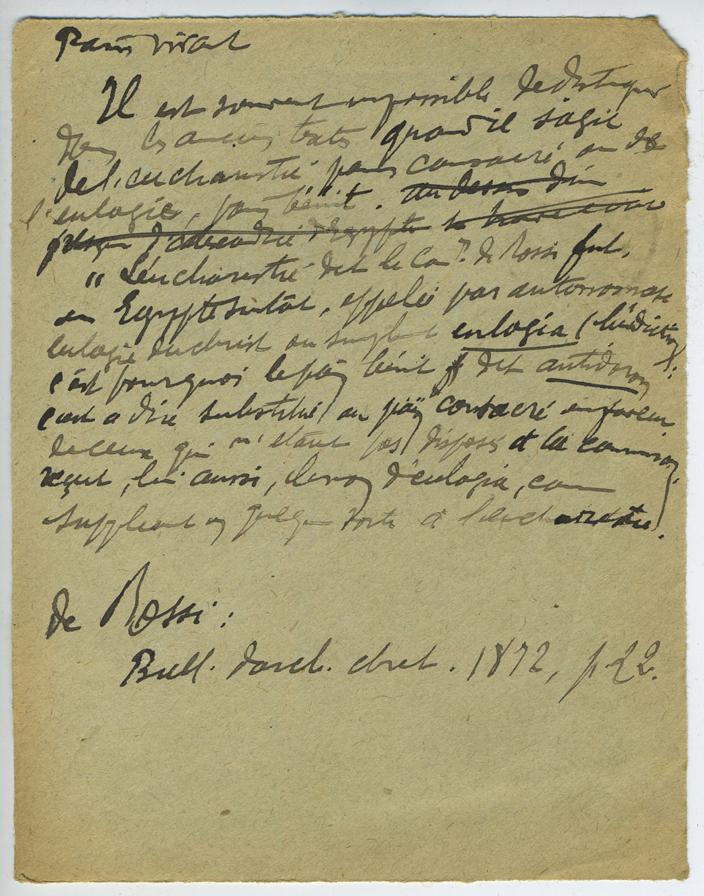 Pain vivant
Il est souvent impossible de distinguer
dans les anciens textes quand il s'agit
de l'eucharistie, pain consacré, ou de
l'eulogie, pain bénit. au dessus d'un
d'Alexandrie d'Egypte
" L'eucharistie dit le Com. de Rossi fut,
en Egypte surtout, appelée par antonomase
eulogie du christ ou simplt eulogia (bénédiction);
c'est pourquoi le pain bénit dit antidoron
c'est a dire substitué au pain consacré en faveur
de ceux qui n'étant pas disposés à la communion,
reçut, lui aussi, le nom d'eulogia, comme
suppléant en quelque sorte à l'eucharistie.
de Rossi :
Bull. d'arch. chret. 1872, p. 22.